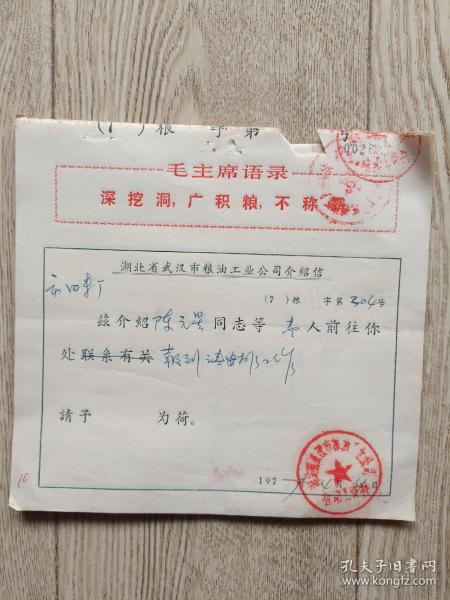 (7 ) 粮 字 第 号
毛主席语录
深挖洞,广积粮,不称霸
湖北省武汉市粮油工业公司介绍信
(7 )粮 字第304号
兹介绍陈元星同志等 壹人前往你
处联系有关 报到 请安排工作
請予 为荷。
197 4月 日
孔夫子旧书网
www.kongfz.com